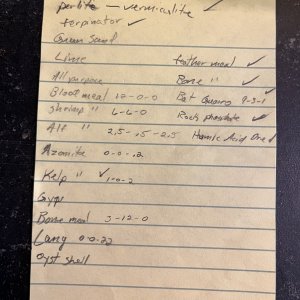 perlite – vermiculite ✓
terpinator ✓
Green Sand
Lime feather meal ✓
All purpose Bone " ✓
Bloot meal 12-0-0 Bat Guano 9-3-1 ✓
Shrimp " 6-6-0 Rock phosphate ✓
Alf " 2.5-.5-2.5 Humic Acid
Azomite 0-0-.2
Kelp " ✓ 1-0-2
Gyp
Bone meal 3-12-0
Lang 0-0-22
Oyst shell